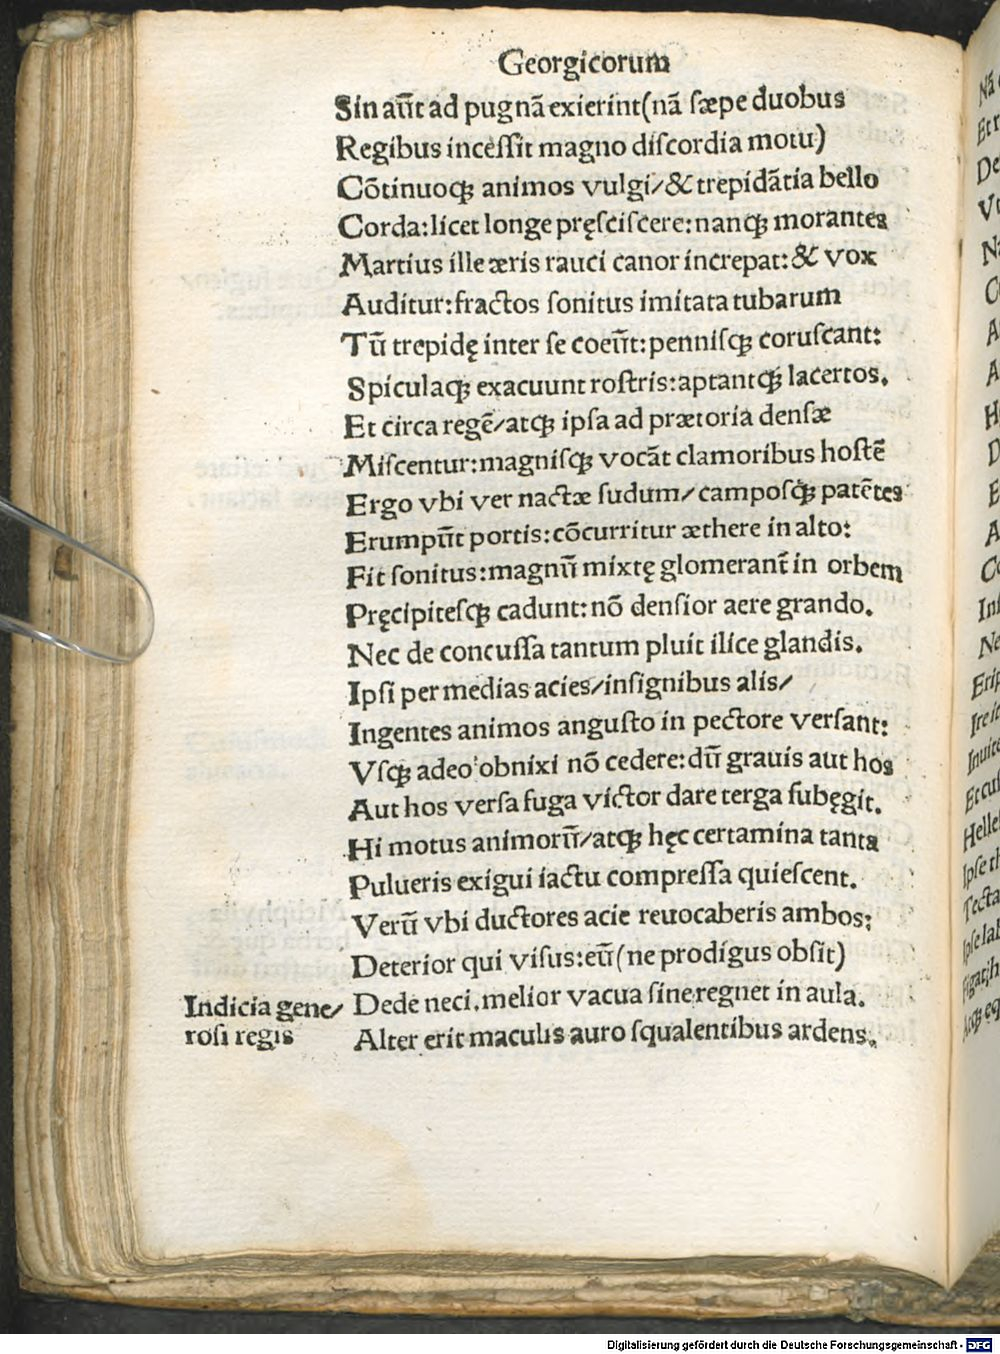 Georgicorum
Sin aūt ad pugnā exierint(nā ſæpe duobus
Regibus inceſſit magno diſcordia motu)
Cōtinuoqꝫ animos vulgi/& trepidātia bello
Corda:licet longe pręſciſcere:nanqꝫ morantes
Martius ille æris rauci canor increpat:& vox
Auditur:fractos ſonitus imitata tubarum
Tū trepidę inter ſe coeūt:penniſqꝫ coruſcant:
Spiculaqꝫ exacuunt roſtris:aptantqꝫ lacertos.
Et circa regē/atqꝫ ipſa ad prætoria denſæ
Miſcentur:magniſqꝫ vocāt clamoribus hoſtē
Ergo vbi ver nactæ ſudum/campoſqꝫ patētes
Erumpūt portis:cōcurritur æthere in alto:
Fit ſonitus:magnū mixtę glomerant in orbem
Pręcipiteſqꝫ cadunt:nō denſior aere grando.
Nec de concuſſa tantum pluit ilice glandis.
Ipſi per medias acies/inſignibus alis/
Ingentes animos anguſto in pectore verſant:
Vſqꝫ adeo obnixi nō cedere:dū grauis aut hos
Aut hos verſa fuga victor dare terga ſubęgit.
Hi motus animorū/atqꝫ hęc certamina tanta
Pulueris exigui iactu compreſſa quieſcent.
Verū vbi ductores acie reuocaberis ambos:
Deterior qui viſus:eū(ne prodigus obſit)
Dede neci.melior vacua ſine regnet in aula.
Alter erit maculis auro ſqualentibus ardens.
Indicia gene/
roſi regis
Digitalisierung gefördert durch die Deutsche Forschungsgemeinschaft - DFG